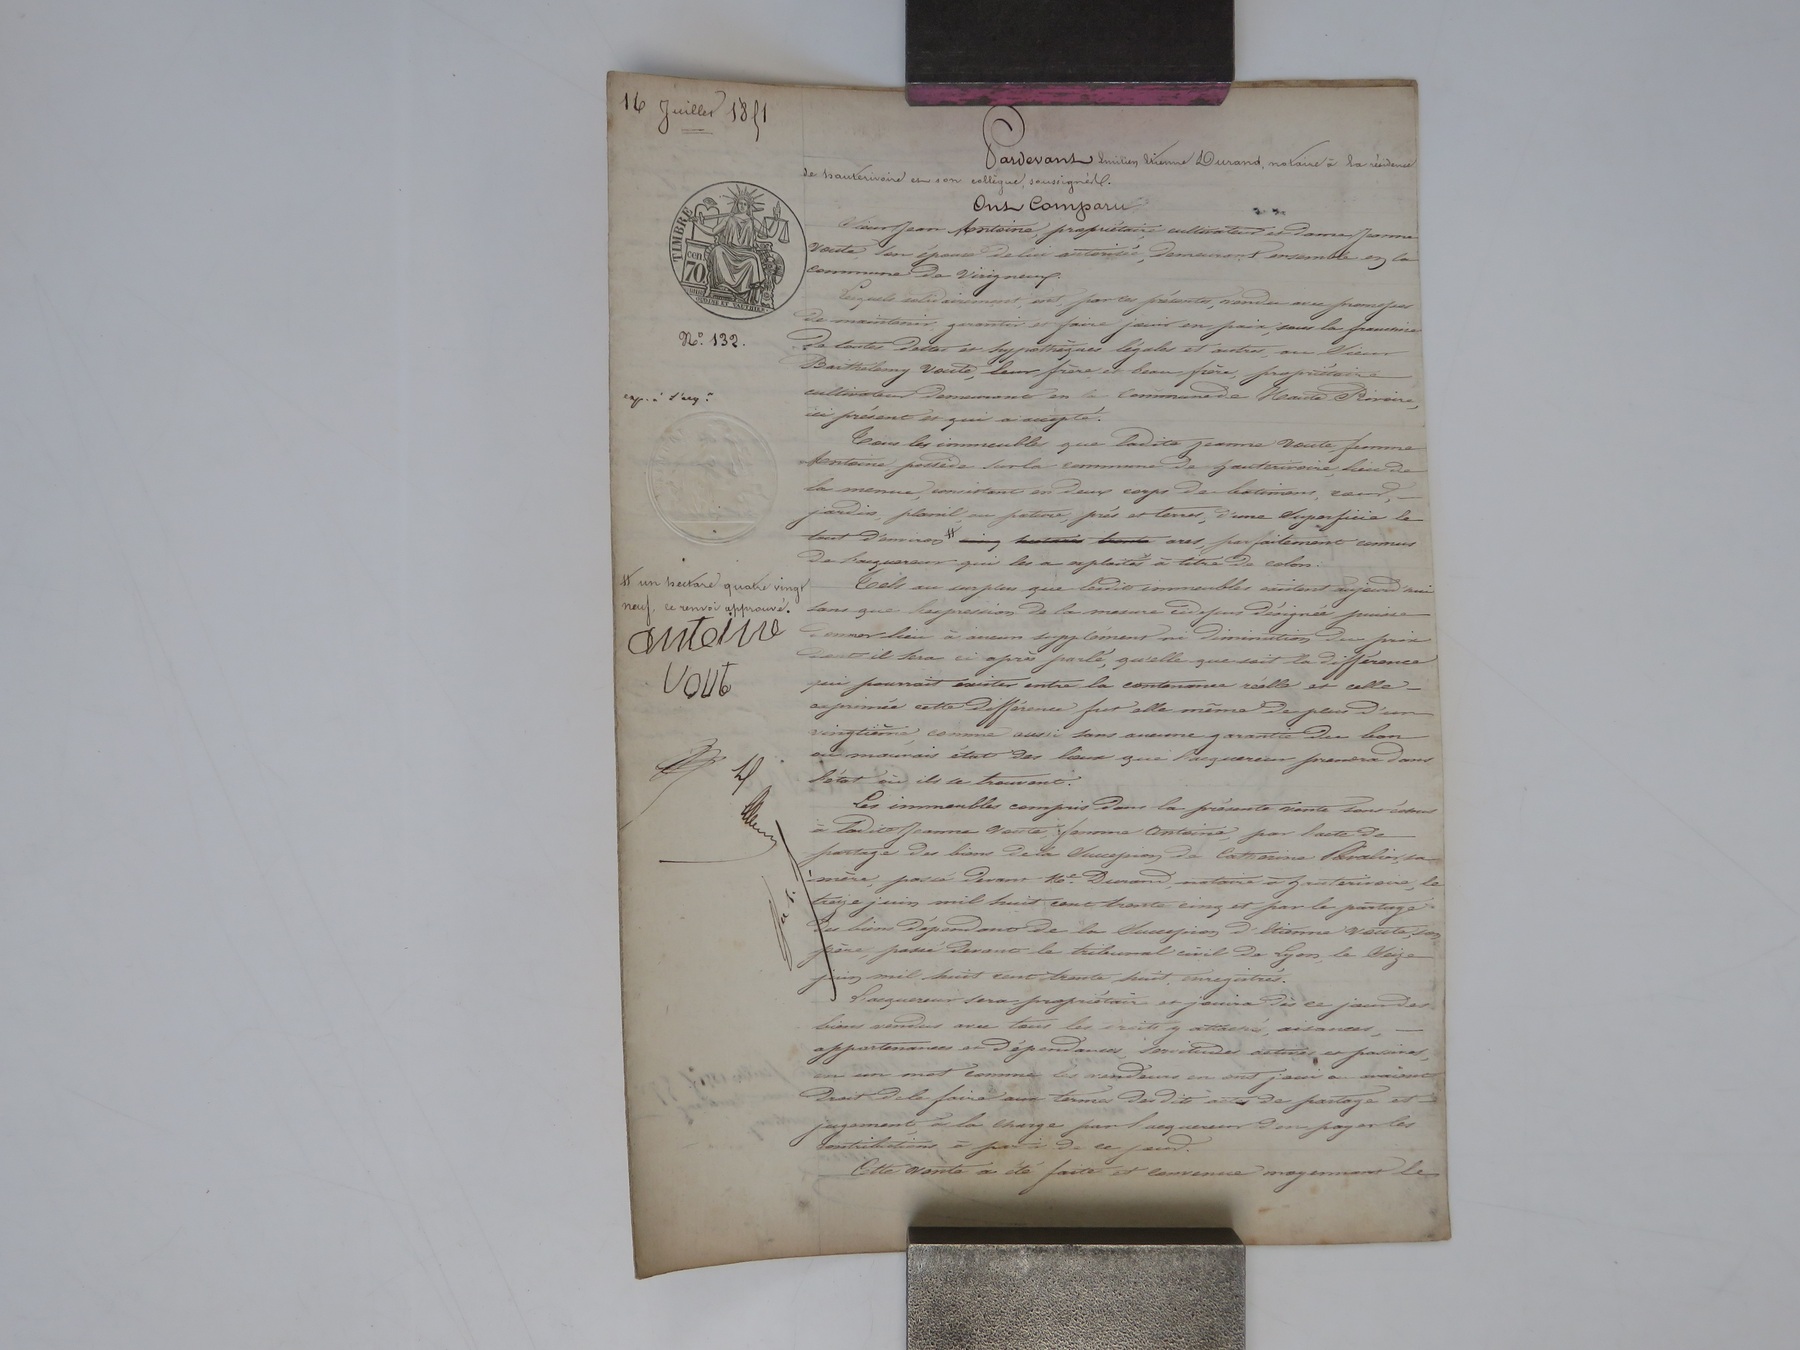 16 Juillet 1851
Pardevant Emilien Etienne Durand, notaire à la résidence
de hauterivoire et son collègue, soussignés.
Ont Comparu
Sieur Jean Antoine, propriétaire cultivateur et dame Jeanne
Voute son épouse de lui autorisée, demeurant ensemble en la
commune de Virigneux.
Lesquels solidairement, ont, par ces présentes, vendu avec promesse
de maintenir, garantir et faire jouir en paix, sous la franchise
de toutes dettes et hypothèques légales et autres, au Sieur
Barthélemy Voute, leur frère et beau-frère, propriétaire
cultivateur demeurant en la Commune de Haute Rivoire,
ici présent et qui a accepté.
Tous les immeuble que ladite Jeanne Voute, femme
Antoine, possède sur la commune de hauterivoire, lieu de
la menue, consistant en deux corps de batiments, cour, -
jardin, planil, ou pature, prés et terres, d'une Superficie le
tout d'environ # cinq hectares trente ares, parfaitement connus
de l'acquereur qui les a exploités à titre de colon.
Tels au surplus que lesdits immeubles existent aujourd'hui
sans que l'expression de la mesure ci dessus désignée puisse
donner lieu à aucun supplément ni diminution du prix
dont il sera ci après parlé, qu'elle que soit la différence
qui pourrait exister entre la contenance réelle et celle -
exprimée cette différence fut elle même de plus d'un
vingtième, comme aussi sans aucune garantie du bon
ou mauvais état des lieux que l'acquereur prendra dans
l'état où ils se trouvent.
Les immeubles compris dans la présente vente sont échus
à ladite Jeanne Voute, femme Antoine, par l'acte de
partage des biens de la Succession de Catherine sa
mère, passé devant Me Durand, notaire à hauterivoire, le
treize juin mil huit cent trente cinq et par le partage
des biens dépendant de la Succession d'Etienne Voute, son
père, passé devant le tribunal civil de Lyon le Seize
juin mil huit cent trente huit, enregistrés.
L'acquereur sera propriétaire et jouira dès ce jour des
biens vendus avec tous les droits y attachés, aisances, -
appartenances et dépendances, servitudes actives et passives,
en un mot comme les vendeurs en ont joui ou avaient
droit de le faire aux termes desdits actes de partage et
jugement, à la charge par l'acquereur d'en payer les
contributions à partir de ce jour.
Cette vente a été faite et convenue moyennant le
TIMBRE
70
cen
No. 132.
exp. à l'acq.r
# un hectare quatre vingt
neuf, ce renvoi approuvé.
antoine
Vout